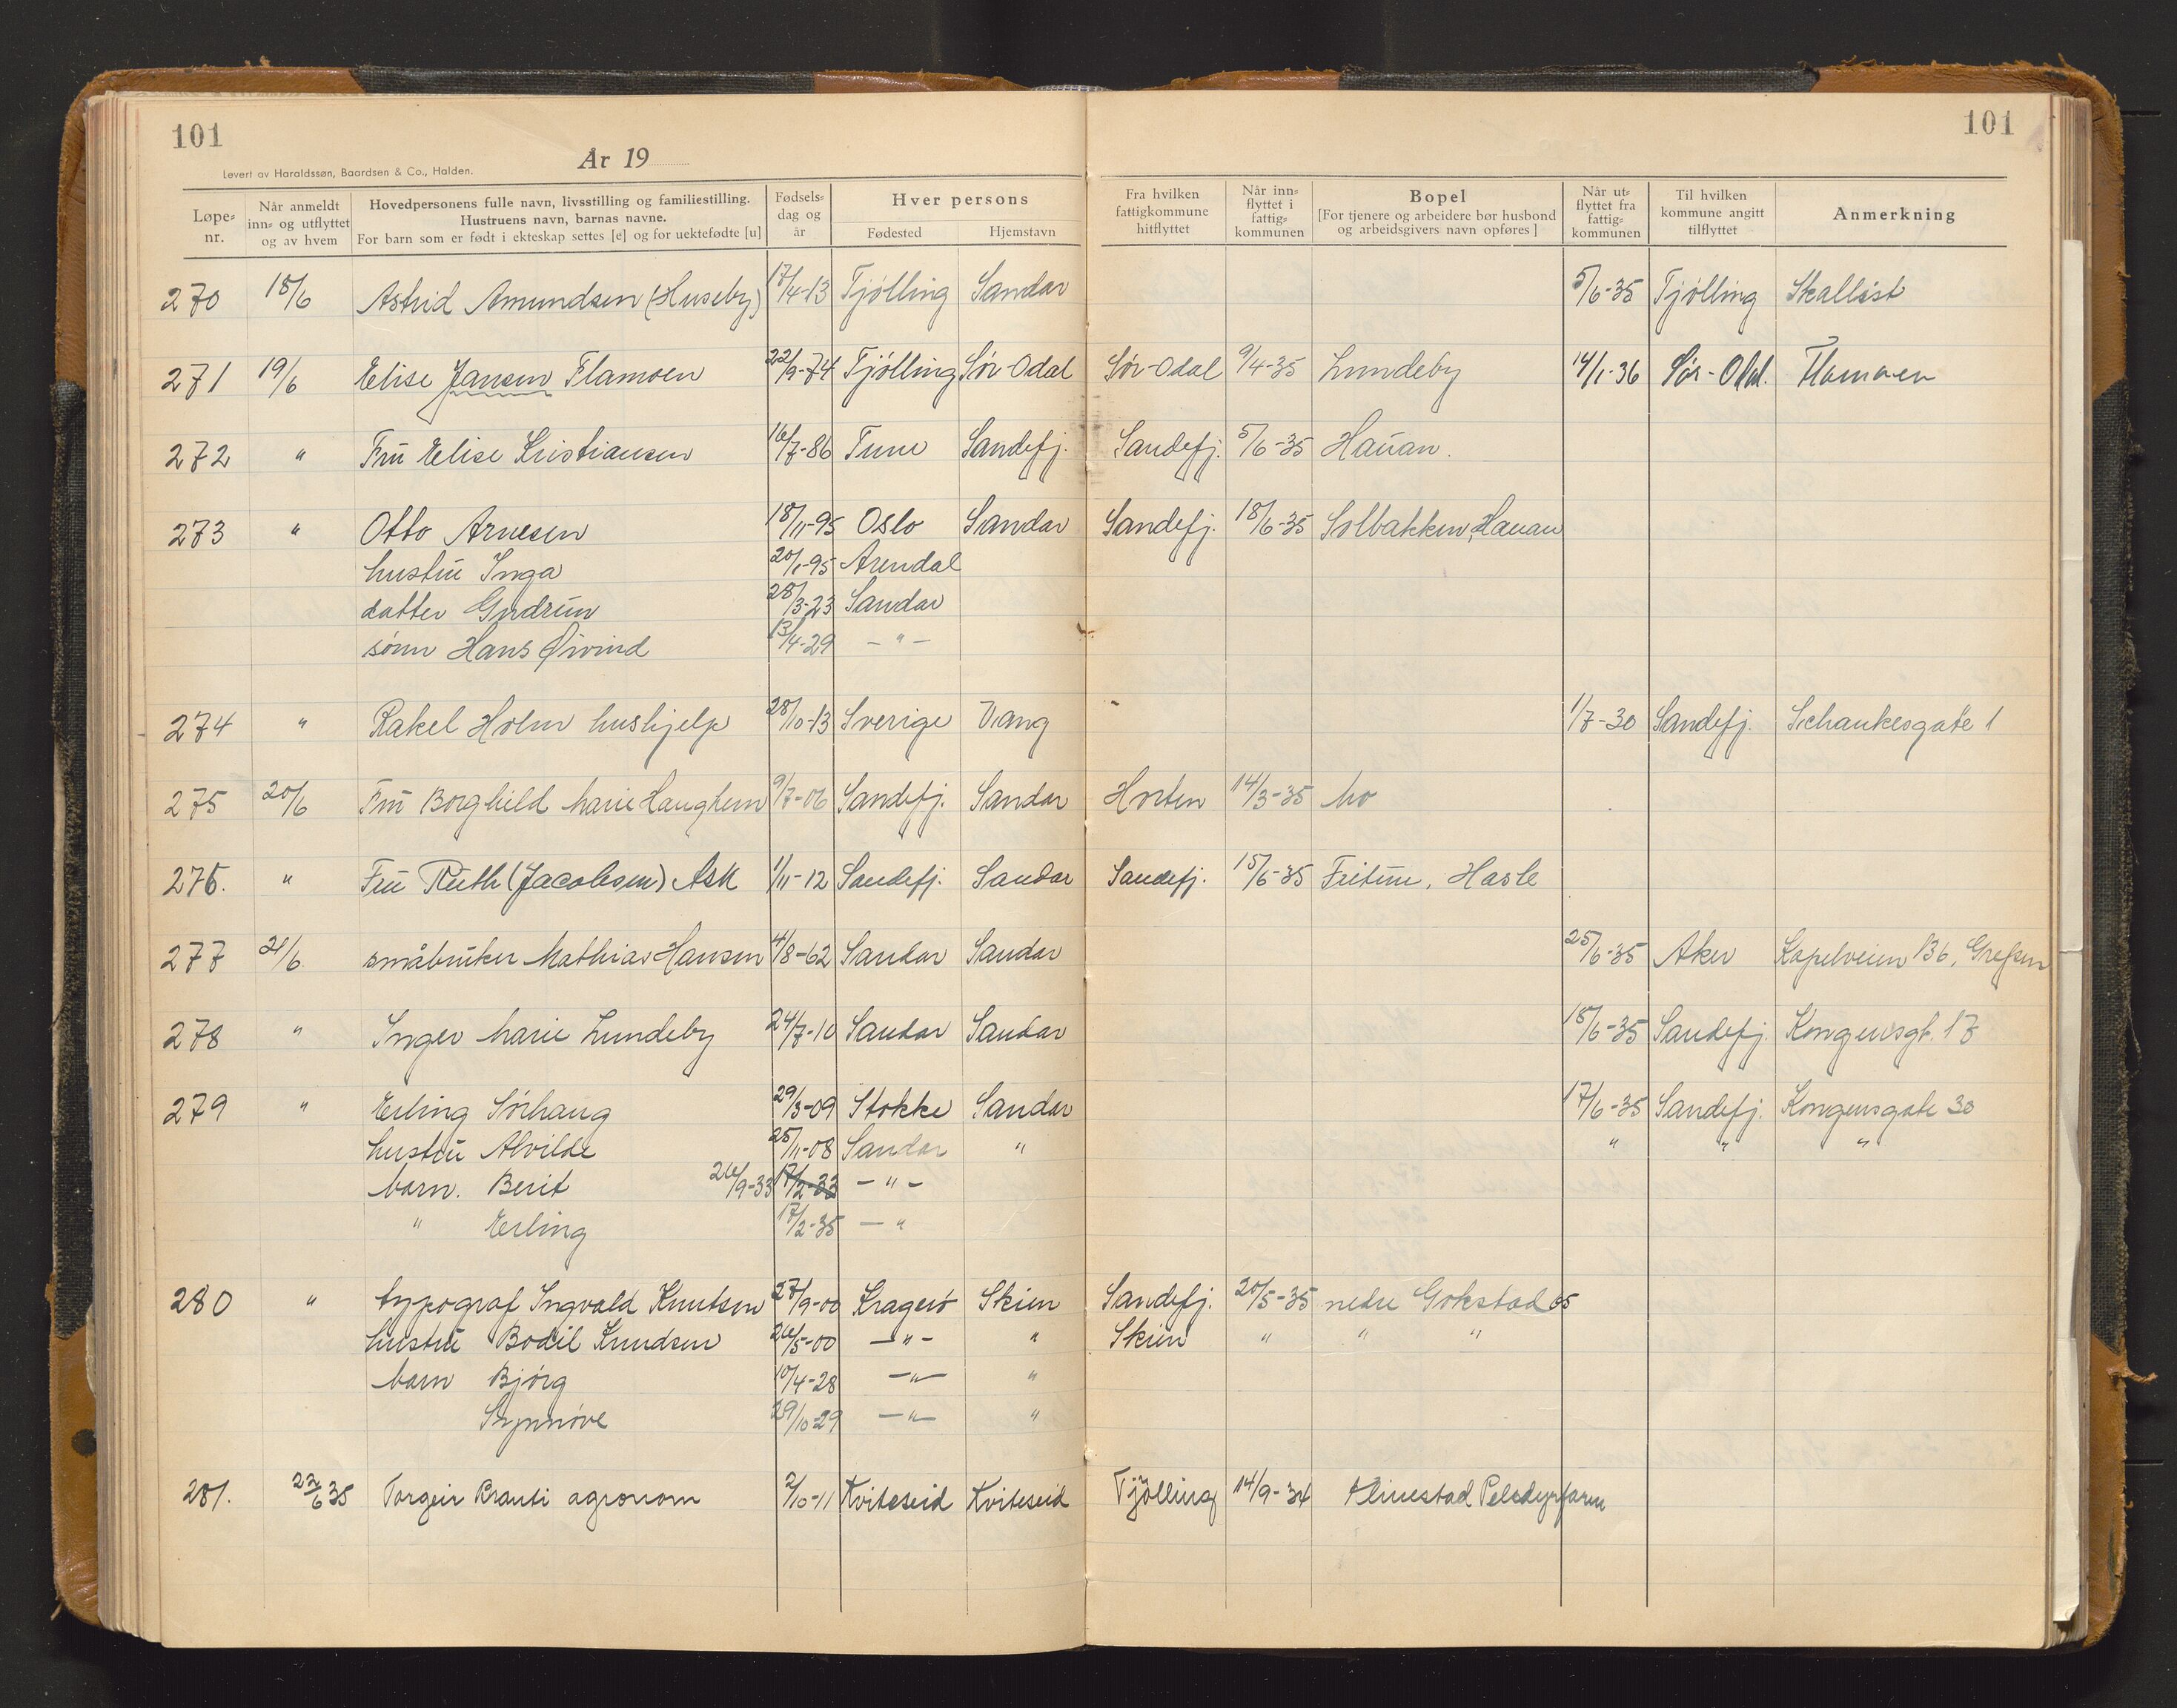 101 101
År 19
Levert av Haraldssøn, Baardsen & Co., Halden.
Løpe-nr. Når anmeldt inn- og utflyttet og av hvem Hovedpersonens fulle navn, livsstilling og familiestilling. Hustruens navn, barnas navne. For barn som er født i ekteskap settes [e] og for uektefødte [u] Fødsels-dag og år Hver persons Fødested Hjemstavn Fra hvilken fattigkommune hitflyttet Når inn-flyttet i fattig-kommunen Bopel [For tjenere og arbeidere bør husbond og arbeidsgivers navn opføres] Når ut-flyttet fra fattig-kommunen Til hvilken kommune angitt tilflyttet Anmerkning
270 18/6 Astrid Amundsen (Huseby) 17/4-13 Tjølling Sandar 5/6-35 Tjølling Skalløst
271 19/6 Elise Jansen Flamoen 22/9-74 Tjølling Sør-Odal Sør-Odal 9/4-35 Lundeby 14/1-36 Sør-Odal. Flamoen
272 " Fru Elise Kristiansen 16/7-86 Tune Sandefj. Sandefj. 5/6-35 Hauan.
273 " Otto Arnesen 18/11-95 Oslo Sandar Sandefj. 18/6-35 Solbakken, Hauan
hustru Inga 20/1-95 Arendal
datter Gudrun 28/3-23 Sandar
sønn Hans Øivind 13/4-29 - " -
274 " Rakel Holm hushjelp 28/10-13 Sverige Vang 1/7-30 Sandefj. Schankesgate 1
275 20/6 Fru Borghild Marie Haughem 9/7-06 Sandefj. Sandar Horten 14/3-35 Mo
276. " Fru Ruth (Jacobsen) Ask 1/11-12 Sandefj. Sandar Sandefj. 15/6-35 Fritun, Hasle
277 21/6 småbruker Mathias Hansen 4/8-62 Sandar Sandar 25/6-35 Aker Kapelveien 136, Grefsen
278 " Inger Marie Lundeby 24/7-10 Sandar Sandar 15/6-35 Sandefj. Kongensgt. 17
279 " Erling Sørhaug 29/3-09 Stokke Sandar 17/6-35 Sandefj. Kongensgate 30
hustru Alvilde 25/11-08 Sandar " " " "
barn. Berit 26/9-33 17/2-33 - " -
" Erling 17/2-35 - "
280 " typograf Ingvald Knutsen 27/9-00 Kragerø Skien Sandefj. 20/5-35 nedre Gokstad 65
hustru Bodil Knudsen 26/5-00 - " - " Skien " " "
barn Bjørg 10/4-28 - " - "
Synnøve 29/10-29 - " - "
281. 22/6 35 Torgeir Brauti agronom 2/10-11 Kviteseid Kviteseid Tjølling 14/9-34 Klinestad Pelsdyrfarm